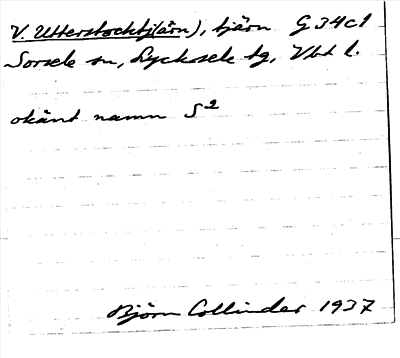 V. Utterstocktj(ärn), tjärn G34c1
Sorsele sn, Lycksele tg, Vbt l.
okänt namn S²
Björn Collinder 1937